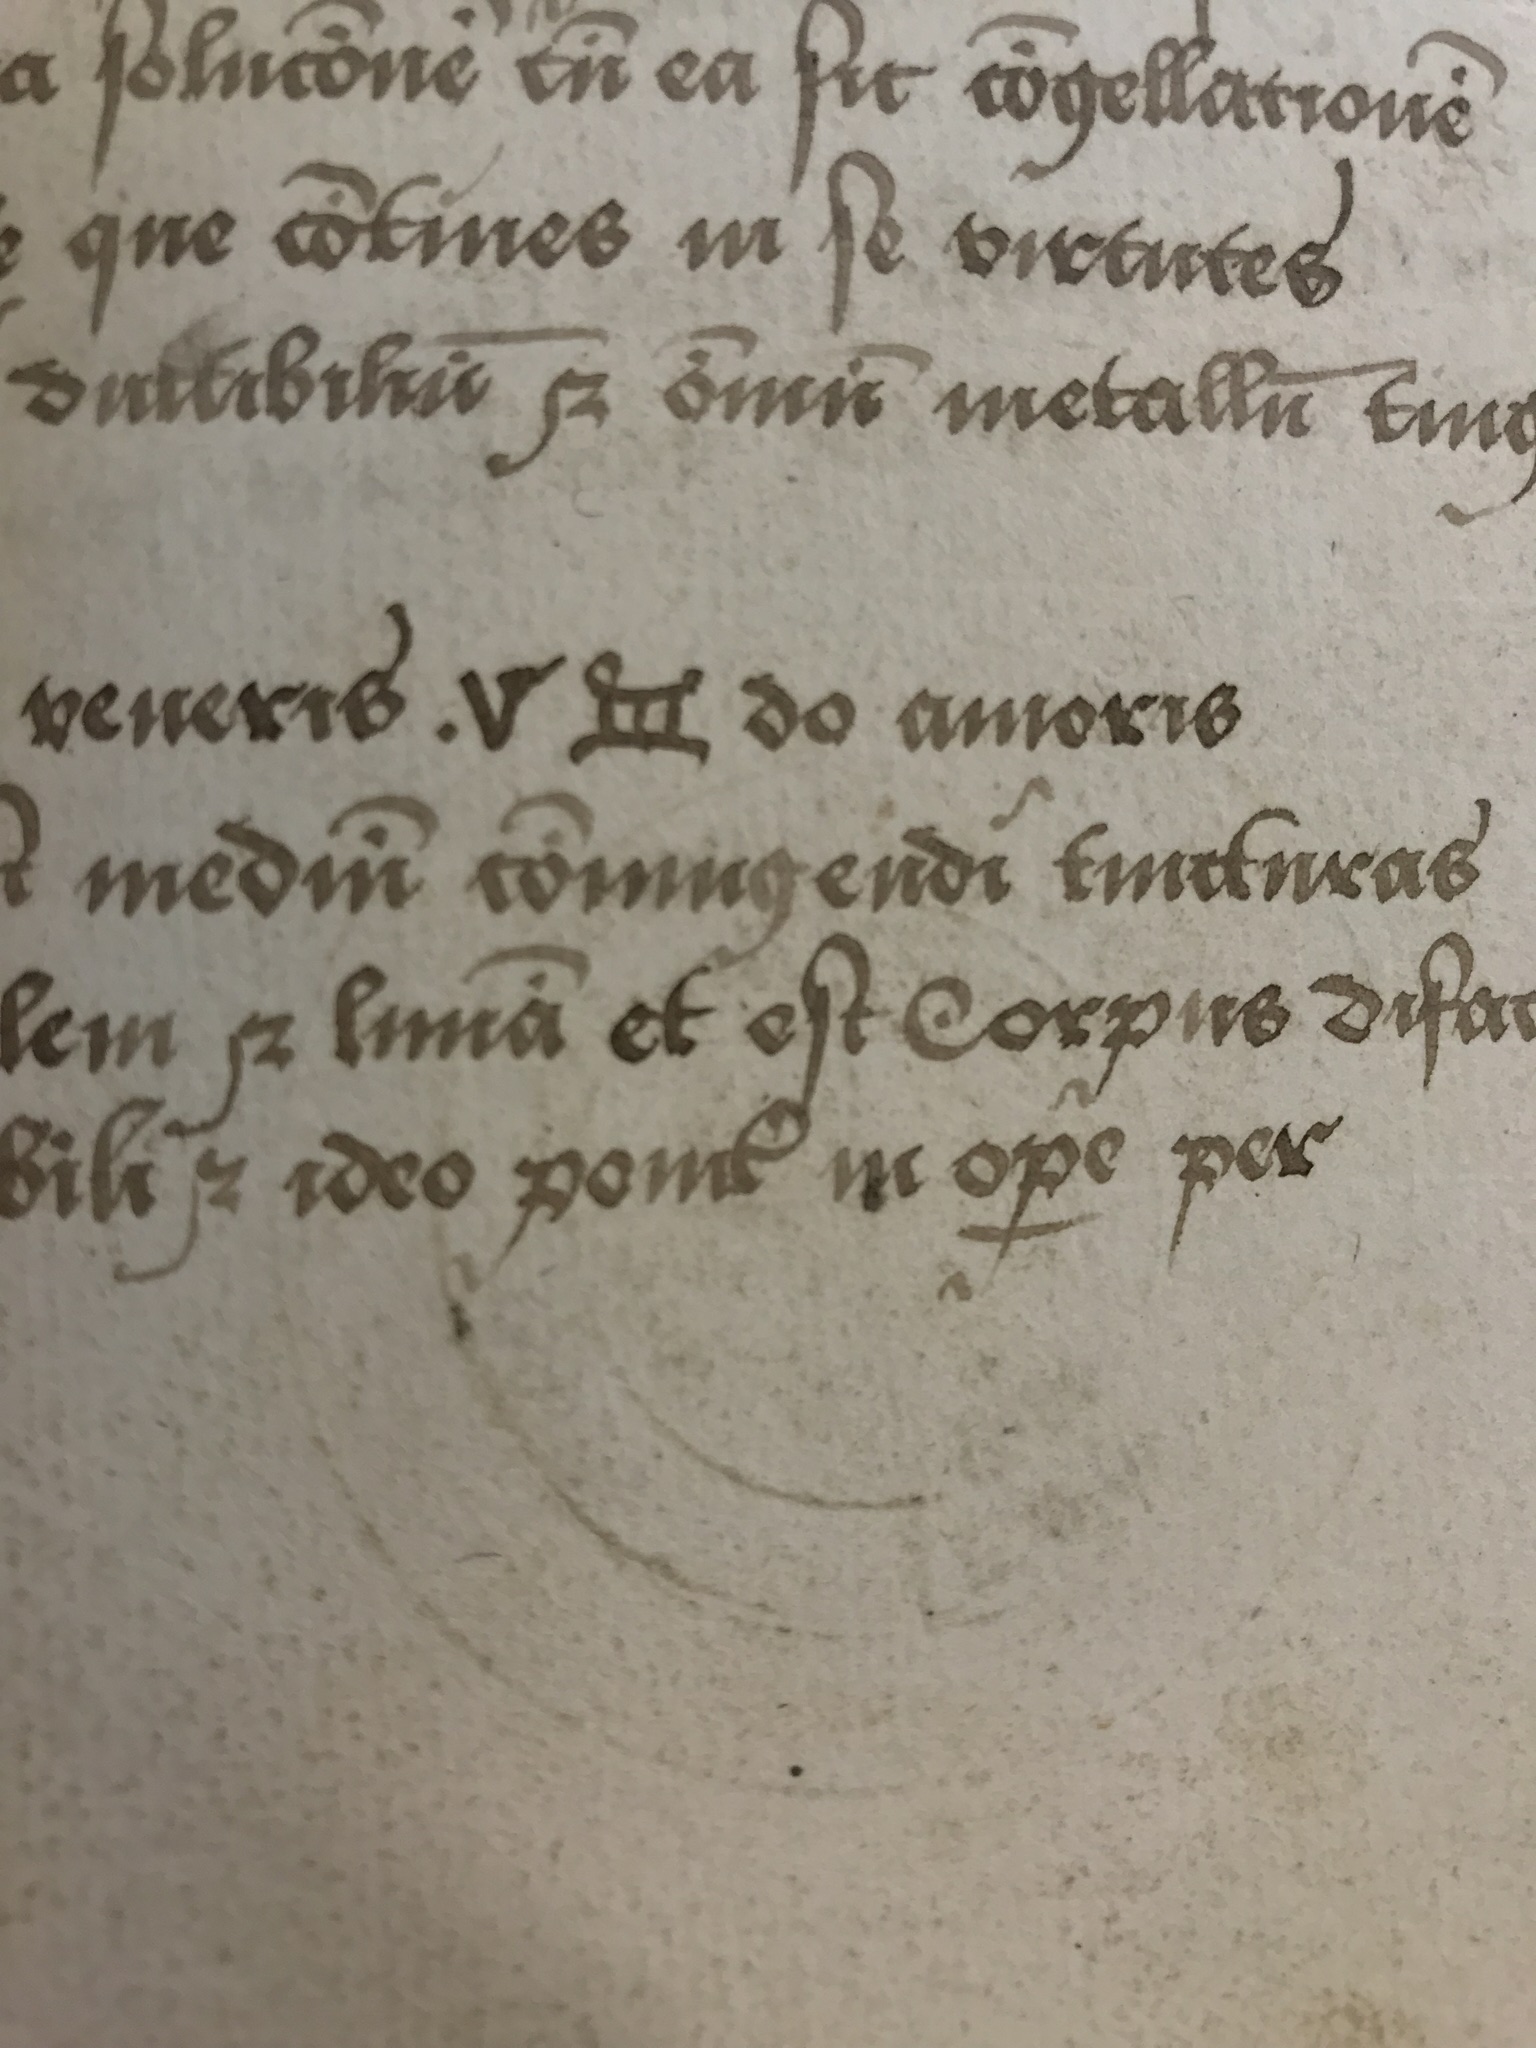 a solucōnē tn̄ ea fit cōgellationē
que cōtines in se virtutes
ductibiliū ꝛ om̄iū metallū ting
veneris .V III do amoris
mediū cōiungendi tincturas
lem ꝛ lunā et est Corpus difac
bili ꝛ ideo ponit᷑ in ope per